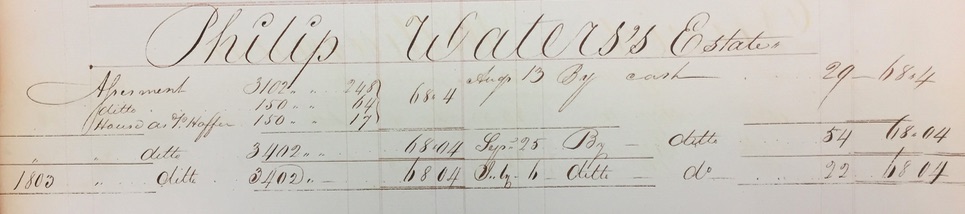 Philip Waters's Estate
Assesment 3102 „ „ 248 Augs 13 By cash 29 – 68.4
ditto 150 „ „ 64 68.4
House as P. Haffer 150 „ „ 17
„ „ ditto 3402 „ „ 68.04 Sepr 25 By – ditto 54 68.04
1803 „ ditto 3402 „ – 68 04 July 6 – ditto – do 22 68 04